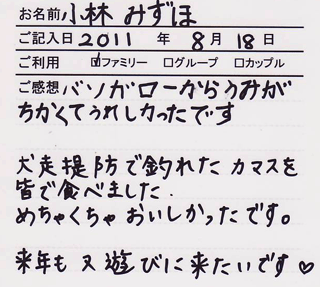 お名前 小林 みずほ
ご記入日 2011 年 8月 18日
ご利用 ☑ファミリー □グループ □カップル
ご感想 バンガローからうみが
ちかくてうれしかったです
犬走提防で釣れた カマスを
皆で食べました.
めちゃくちゃ おいしかったです。
来年も 又 遊びに来たいです♡